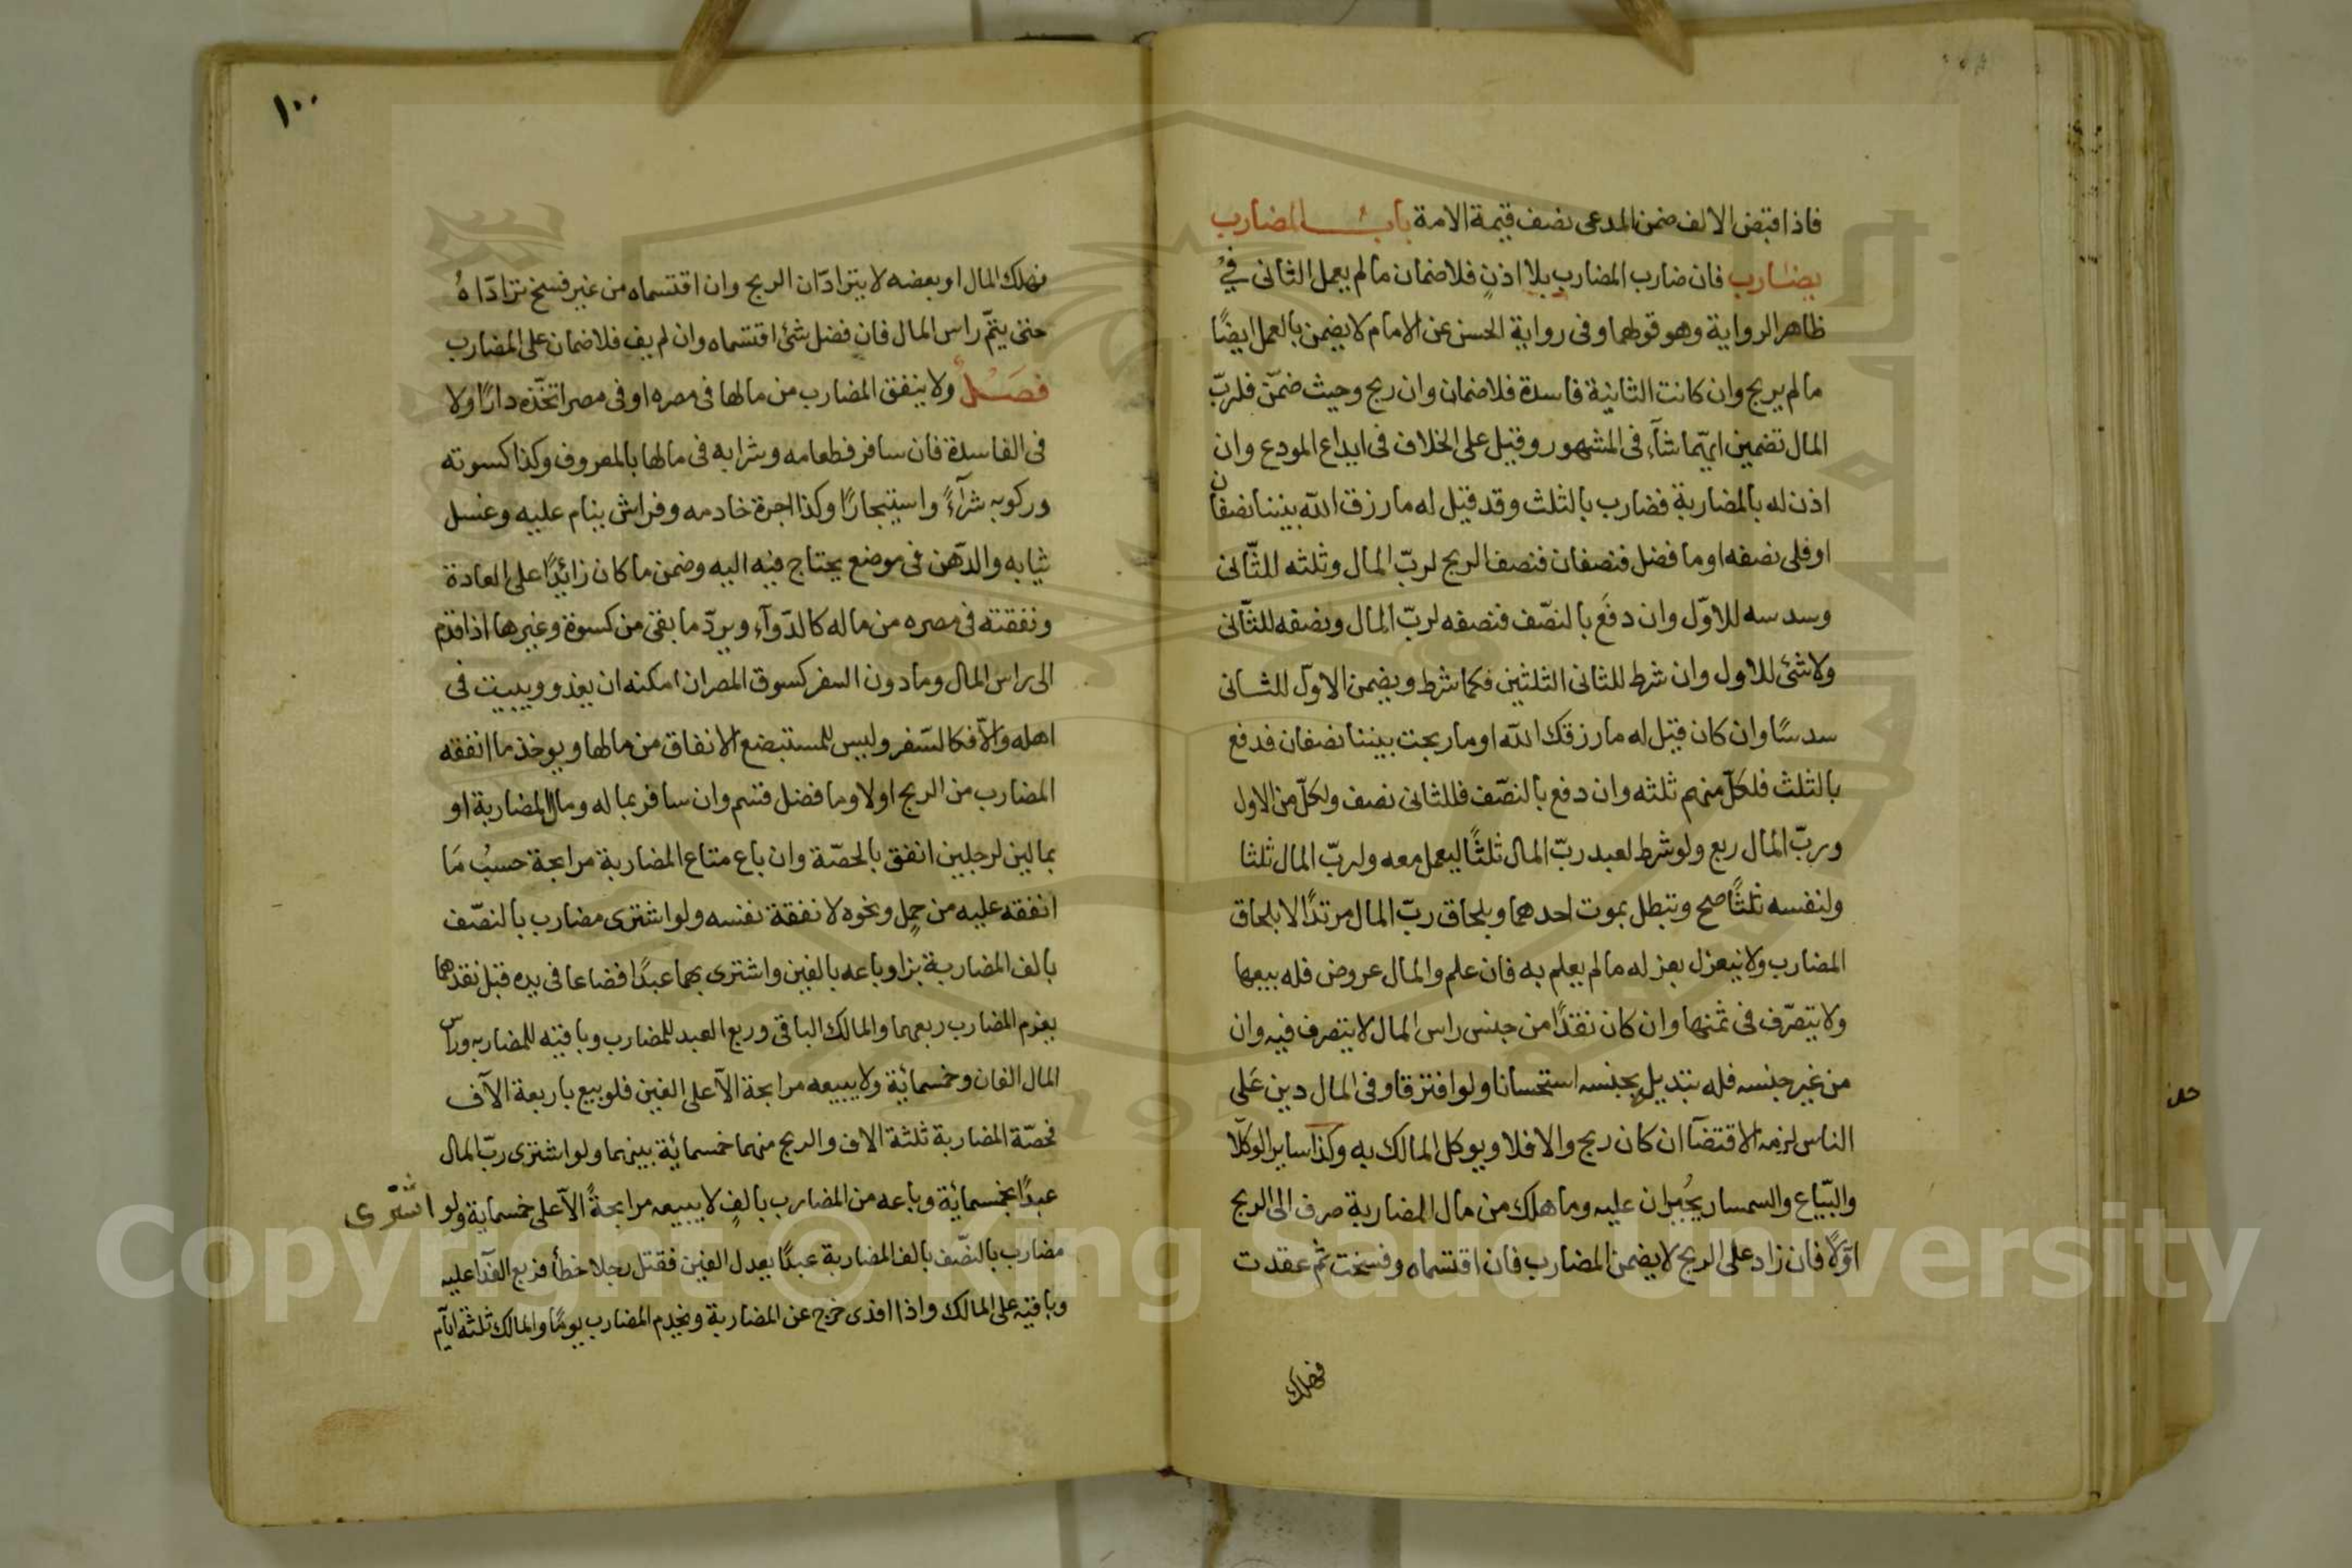 فاذا قبض الالف ضمن المدعى نصف قيمة الامة باب المضارب
يضارب فان ضارب المضارب بلا اذنٍ فلا ضمان ما لم يعمل الثانى في
ظاهر الرواية وهو قولهما وفى رواية الحسن عن الامام لا يضمن بالعمل ايضًا
ما لم يربح وان كانت الثانية فاسدة فلا ضمان وان ربح وحيث ضمّن فلربّ
المال تضمين ايّهما شآء فى المشهور وقيل على الخلاف فى ايداع المودع وان
اذن له بالمضاربة فضارب بالثلث وقد قيل له ما رزق الله بيننا نصفان
او فلى نصفه او ما فضل فنصفان فنصف الربح لربّ المال وثلثه للثّانى
وسدسه للاوّل وان دفع بالنصّف فنصفه لربّ المال ونصفه للثّانى
ولا شئ للاول وان شرط للثانى الثلثين فكما شرط ويضمن الاوّل للثانى
سدسًا وان كان قيل له ما رزقك الله او ما ربحت بيننا نصفان فدفع
بالثلث فلكلّ منهم ثلثه وان دفع بالنصّف فللثانى نصف ولكلّ من الاول
وربّ المال ربع ولو شرط لعبد ربّ المال ثلثًا ليعمل معه ولربّ المال ثلثا
ولنفسه ثلثًا صح وتبطل بموت احدهما وبلحاق ربّ المال مرتدًا لا بلحاق
المضارب ولا ينعزل بعزله ما لم يعلم به فان علم والمال عروض فله بيعها
ولا يتصرّف فى ثمنها وان كان نقدًا من جنس راس المال لا يتصرف فيه وان
من غير جنسه فله تبديل بجنسه استحسانا ولو افترقا وفى المال دين عَلى
الناس لزمه الاقتضآ ان كان ربح والا فلا ويوكل المالك به وكذا ساير الوكلا
والبّياع والسمسار يُجبران عليه وما هلك من مال المضاربة صرف الى الربح
اوّلًا فان زاد على الربح لا يضمن المضارب فان اقتسماه وفسخت ثمّ عقدت
فهلك
١٠٠
فهلك المال او بعضه لا يترادّان الربح وان اقتسماه من غير فسخ ترادّاهُ
حتى يتمّ راس المال فان فضل شئ اقتسماه وان لم يف فلا ضمان على المضارب
فصَلٌ ولا ينفق المضارب من مالها فى مصره او فى مصر اتخّذه دارًا ولا
فى الفاسدة فان سافر فطعامه وشرابه فى مالها بالمعروف وكذا كسوته
وركوبه شرآءً واستيجارًا وكذا اجرة خادمه وفراش ينام عليه وغسل
ثيابه والدّهن فى موضع يحتاج فيه اليه وضمن ما كان زائدًا على العادة
ونفقته فى مصره من ماله كالدّوآء ويردّ ما بقى من كسوة وغيرها اذا قدم
الى راس المال وما دون السفر كسوق المصر ان امكنه ان يغذو ويبيت فى
اهله والّا فكالسّفر وليس للمستبضع الانفاق من مالها ويوخذ ما انفقه
المضارب من الربح اولا وما فضل قسم وان سافر بماله ومال المضاربة او
بمالين لرجلين انفق بالحصّة وان باع متاع المضاربة مرابحة حسبُ مَا
انفقه عليه من حمل ونحوه لا نفقة نفسه ولو اشترى مضارب بالنصّف
بالف المضاربة بزا وباعه بالفين واشترى بهما عبدًا فضاعا فى يده قبل نقدهما
يغرم المضارب ربعهما والمالك الباقى وربع العبد للمضارب وباقيه للمضاربه وراس
المال الفان وخمسمائة ولا يبيعه مرابحة الّا على الفين فلو بيع باربعة الآف
فحصّة المضاربة ثلثة الاف والربح منهما خمسمائة بينهما ولو اشترى ربّ المال
عبدًا بخمسمائة وباعه من المضارب بالفٍ لا يبيعه مرابحةً الّا على خمسماية ولو اشترى
مضارب بالنصّف بالف المضاربة عبدًا يعدل الفين فقتل رجلا خطأ فربع الفدآ عليه
وباقيه على المالك واذا افدى خرج عن المضاربة ويخدم المضارب يومًا والمالك ثلثة ايّام
Copyright © King Saud University